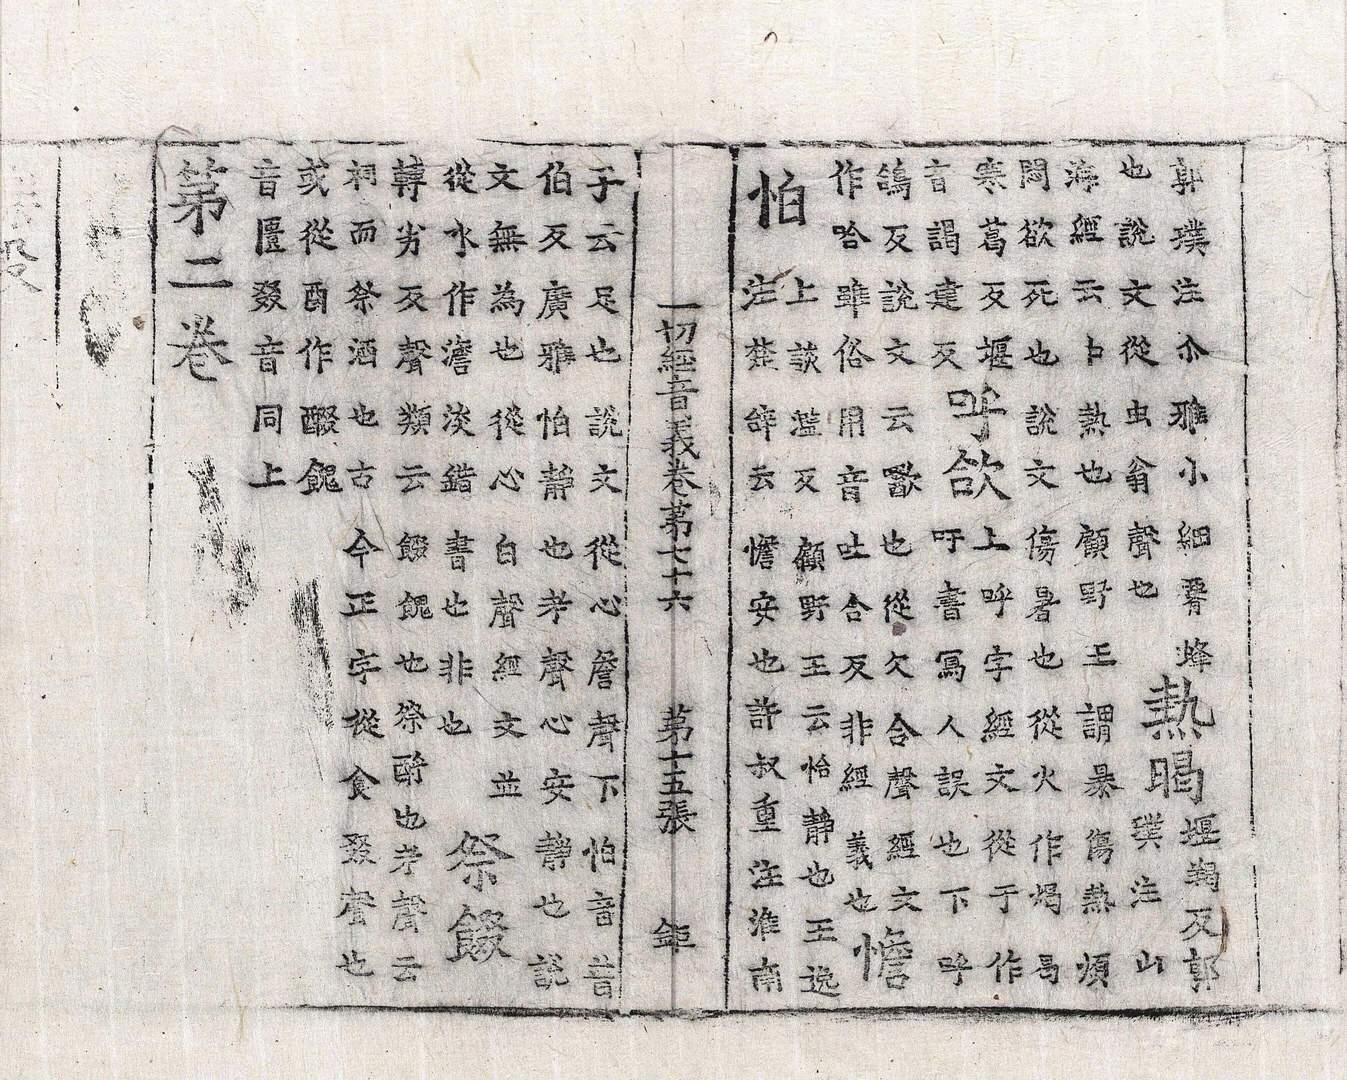 郭璞注尒雅小細脣蜂熱暍堰羯反郭璞注山
也說文從虫翁聲也
海經云卜熱也顧野王謂暴傷熱煩
悶欲死也說文傷暑也從火作暍曷
寒葛反堰呼欱上呼字經文從于作
音謁建反吁書寫人誤也下呼
鴿反說文云歠也從欠合聲經文
作哈雖俗用音吐合反非經義也憺
怕上談濫反顧野王云怡靜也王逸
注楚辝云憺安也許叔重注淮南
一切經音義卷第七十六 第十五張 鉅
子云足也說文從心詹聲下怕音普
伯反廣雅怕靜也考聲心安靜也說
文無為也從心白聲經文並
從水作澹淡錯書也非也祭餟
轉劣反聲類云餟餽也祭酹也考聲云
祠而祭酒也古今正字從食叕聲也
或從酉作醊餽
音匱叕音同上
第二卷